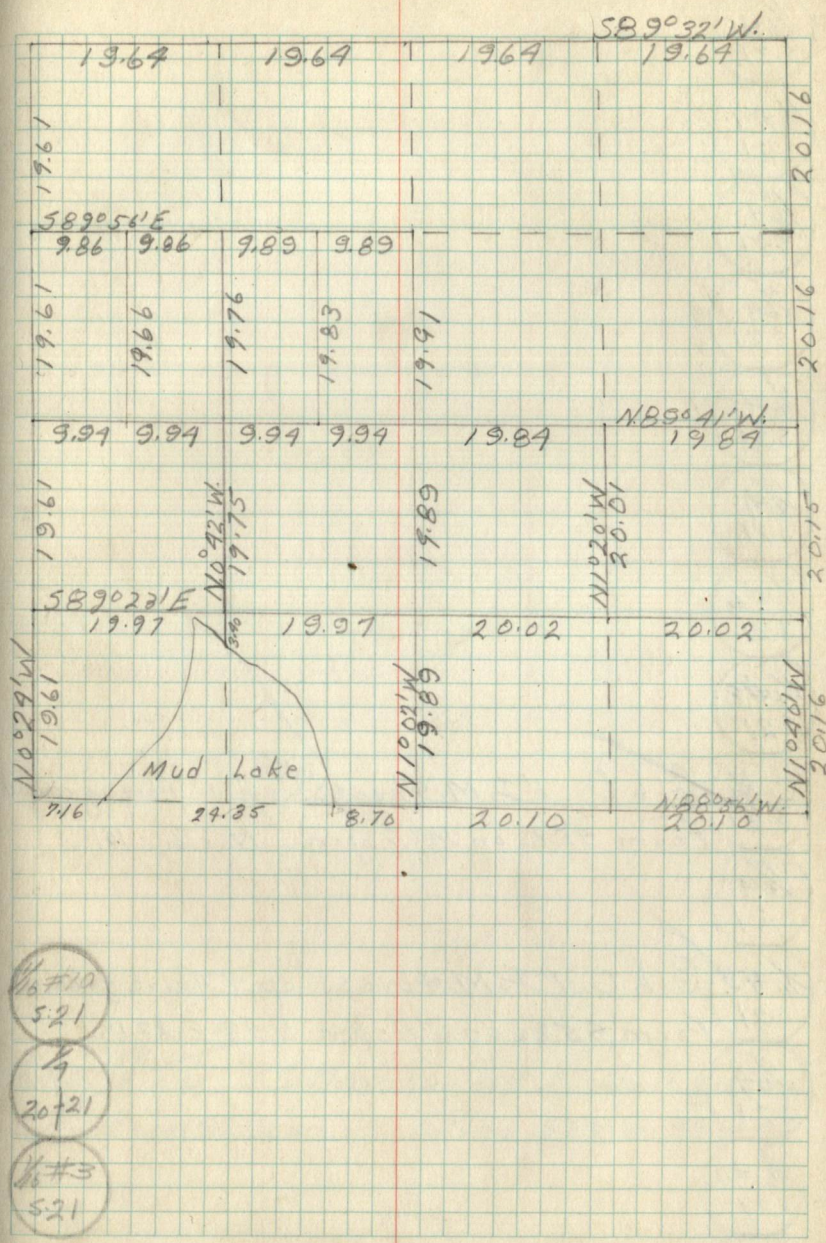 S89°32'W.
19.64 19.64 19.64 19.64
19.61
20.16
S89°56'E
9.86 9.86 9.89 9.89
19.61 19.66 19.76 19.83 19.91 20.16
N.89°41'W.
9.94 9.94 9.94 9.94 19.84 19.84
19.61 N0°42'W. 19.75 19.89 N1°20'W 20.01 20.15
S89°23'E
19.97 3.40 19.97 20.02 20.02
N0°24'W 19.61 N1°02'W 19.89 N1°40'W 20.16
Mud Lake
N88°56'W.
7.16 24.35 8.70 20.10 20.10
1/16 #10
S.21
1/4
20+21
1/16 #3
S.21